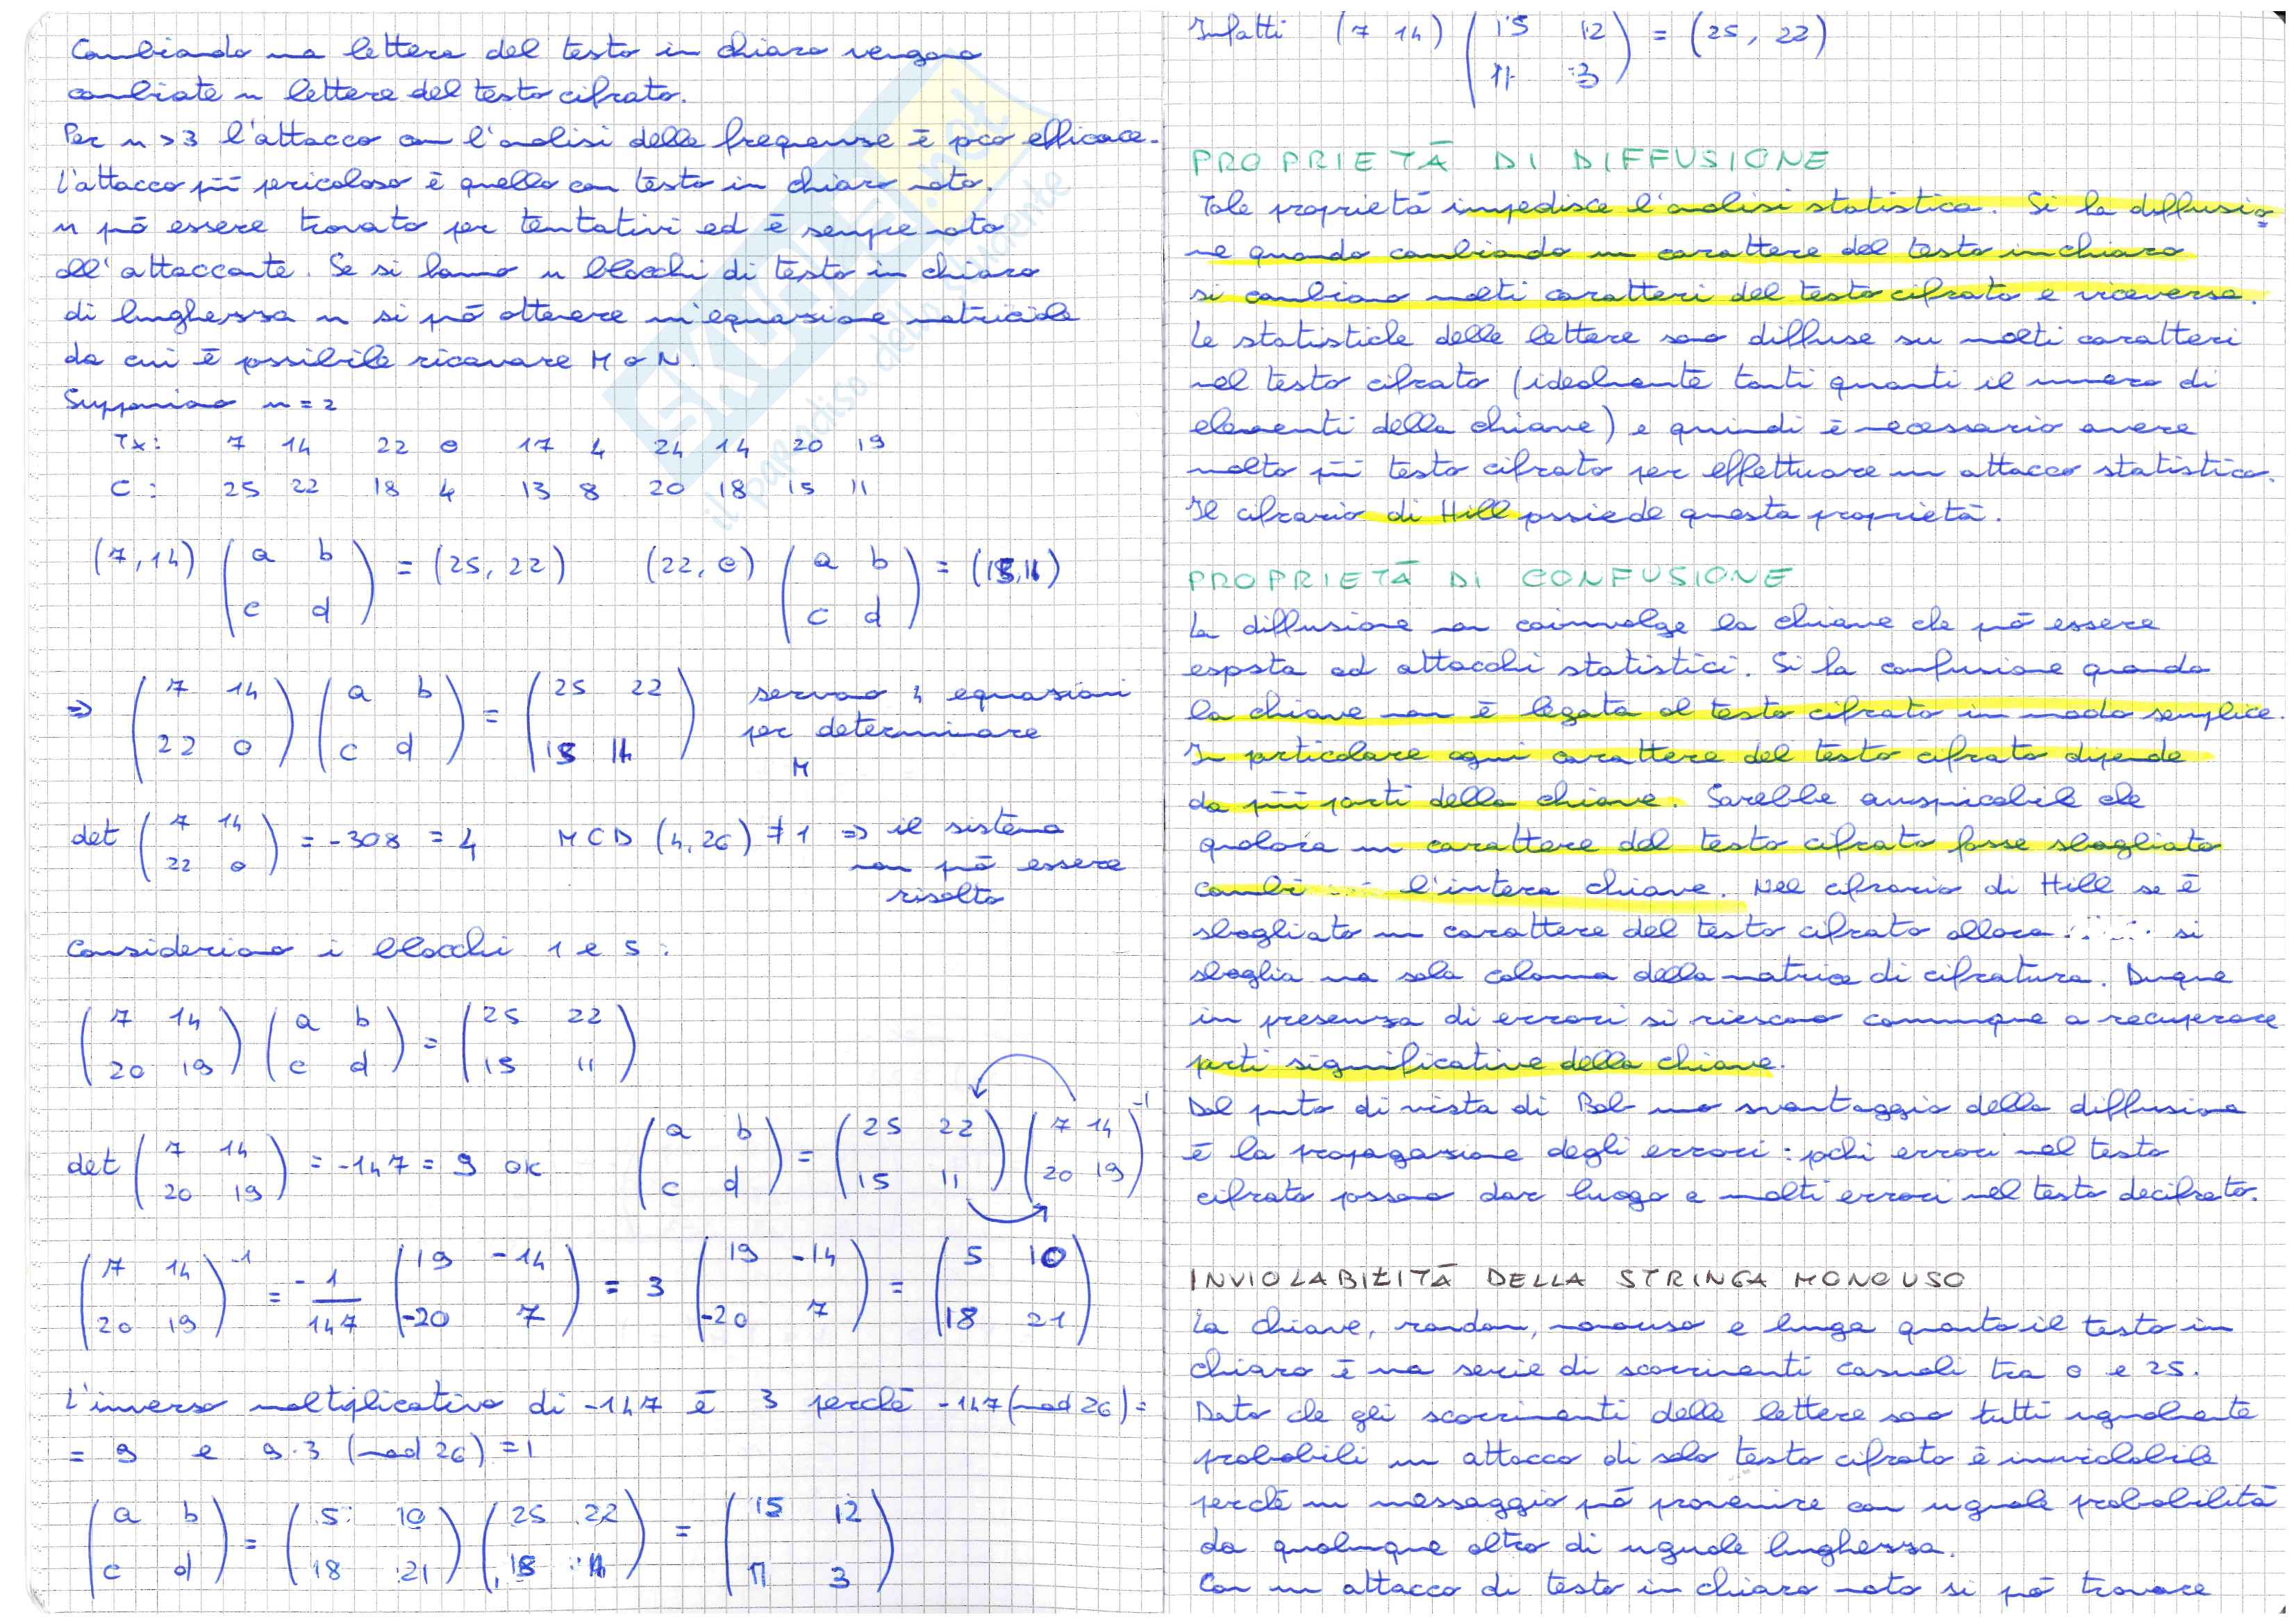 Cambiando una lettera del testo in chiaro vengono
cambiate n lettere del testo cifrato.
Per n > 3 l'attacco con l'analisi delle frequenze è poco efficace.
L'attacco più pericoloso è quello con testo in chiaro noto.
n può essere trovato per tentativi ed è sempre noto
all'attaccante. Se si hanno n blocchi di testo in chiaro
di lunghezza n si può ottenere un'equazione matriciale
da cui è possibile ricavare M o N.
Supponiamo n = 2
Tx: 7 14 22 0 17 4 24 14 20 19
C: 25 22 18 4 13 8 20 18 15 11
(7,14) (a b = (25, 22) (22, 0) (a b = (15,11)
c d) c d)
⇒ (7 14 (a b = (25 22 servono 4 equazioni
22 0) c d) 15 11) per determinare
M
det (7 14 = -308 = 4 MCD (4,26) ≠ 1 ⇒ il sistema
22 0) non può essere
risolto
Consideriamo i blocchi 1 e 5:
(7 14 (a b = (25 22
20 19) c d) 15 11)
det (7 14 = -147 = 9 OK (a b = (25 22 (7 14 -1
20 19) c d) 15 11) 20 19)
(7 14 -1 = -1/147 (19 -14 = 3 (19 -14 = (5 10
20 19) -20 7) -20 7) 18 21)
L'inverso moltiplicativo di -147 è 3 perché -147 (mod 26) =
= 9 e 9·3 (mod 26) = 1
(a b = (5 10 (25 22 = (15 12
c d) 18 21) 15 11) 11 3)
Infatti (7 14) (15 12 = (25, 22)
11 3)
PROPRIETÀ DI DIFFUSIONE
Tale proprietà impedisce l'analisi statistica. Si ha diffusio
ne quando cambiando un carattere del testo in chiaro
si cambiano molti caratteri del testo cifrato e viceversa.
Le statistiche delle lettere sono diffuse su molti caratteri
nel testo cifrato (idealmente tanti quanti il numero di
elementi della chiave) e quindi è necessario avere
molto più testo cifrato per effettuare un attacco statistico.
Il cifrario di Hill possiede questa proprietà.
PROPRIETÀ DI CONFUSIONE
La diffusione non coinvolge la chiave che può essere
esposta ad attacchi statistici. Si ha confusione quando
la chiave non è legata al testo cifrato in modo semplice.
In particolare ogni carattere del testo cifrato dipende
da più parti della chiave. Sarebbe auspicabile che
qualora un carattere del testo cifrato fosse sbagliato
cambi l'intera chiave. Nel cifrario di Hill se è
sbagliato un carattere del testo cifrato allora si
sbaglia una sola colonna della matrice di cifratura. Dunque
in presenza di errori si riescono comunque a recuperare
parti significative della chiave.
Dal punto di vista di Bob uno svantaggio della diffusione
è la propagazione degli errori: pochi errori nel testo
cifrato possono dar luogo a molti errori nel testo decifrato.
INVIOLABILITÀ DELLA STRINGA MONOUSO
La chiave, random, monouso e lunga quanto il testo in
chiaro è una serie di scorrimenti casuali tra 0 e 25.
Dato che gli scorrimenti delle lettere sono tutti ugualmente
probabili un attacco di solo testo cifrato è inviolabile
perché un messaggio può provenire con uguale probabilità
da qualunque altro di uguale lunghezza.
Con un attacco di testo in chiaro noto si può trovare
SKUOLA.net
il paradiso dello studente